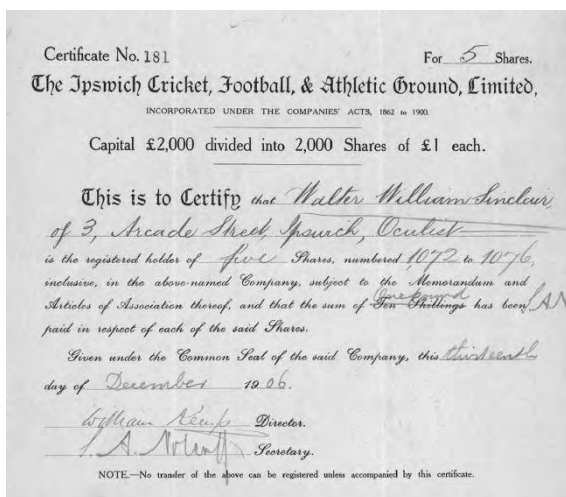 Certificate No. 181 For 5 Shares.
The Ipswich Cricket, Football, & Athletic Ground, Limited,
INCORPORATED UNDER THE COMPANIES' ACTS, 1862 to 1900.
Capital £2,000 divided into 2,000 Shares of £1 each.
This is to Certify that Walter William Sinclair,
of 3, Arcade Street, Ipswich, Oculist
is the registered holder of five Shares, numbered 1072 to 1076,
inclusive, in the above-named Company, subject to the Memorandum and
One pound
Articles of Association thereof, and that the sum of Ten Shillings has been
paid in respect of each of the said Shares.
Given under the Common Seal of the said Company, this thirteenth
day of December 1906.
William Director.
S. A. Secretary.
NOTE.—No trander of the above can be registered unless accompanied by this certificate.